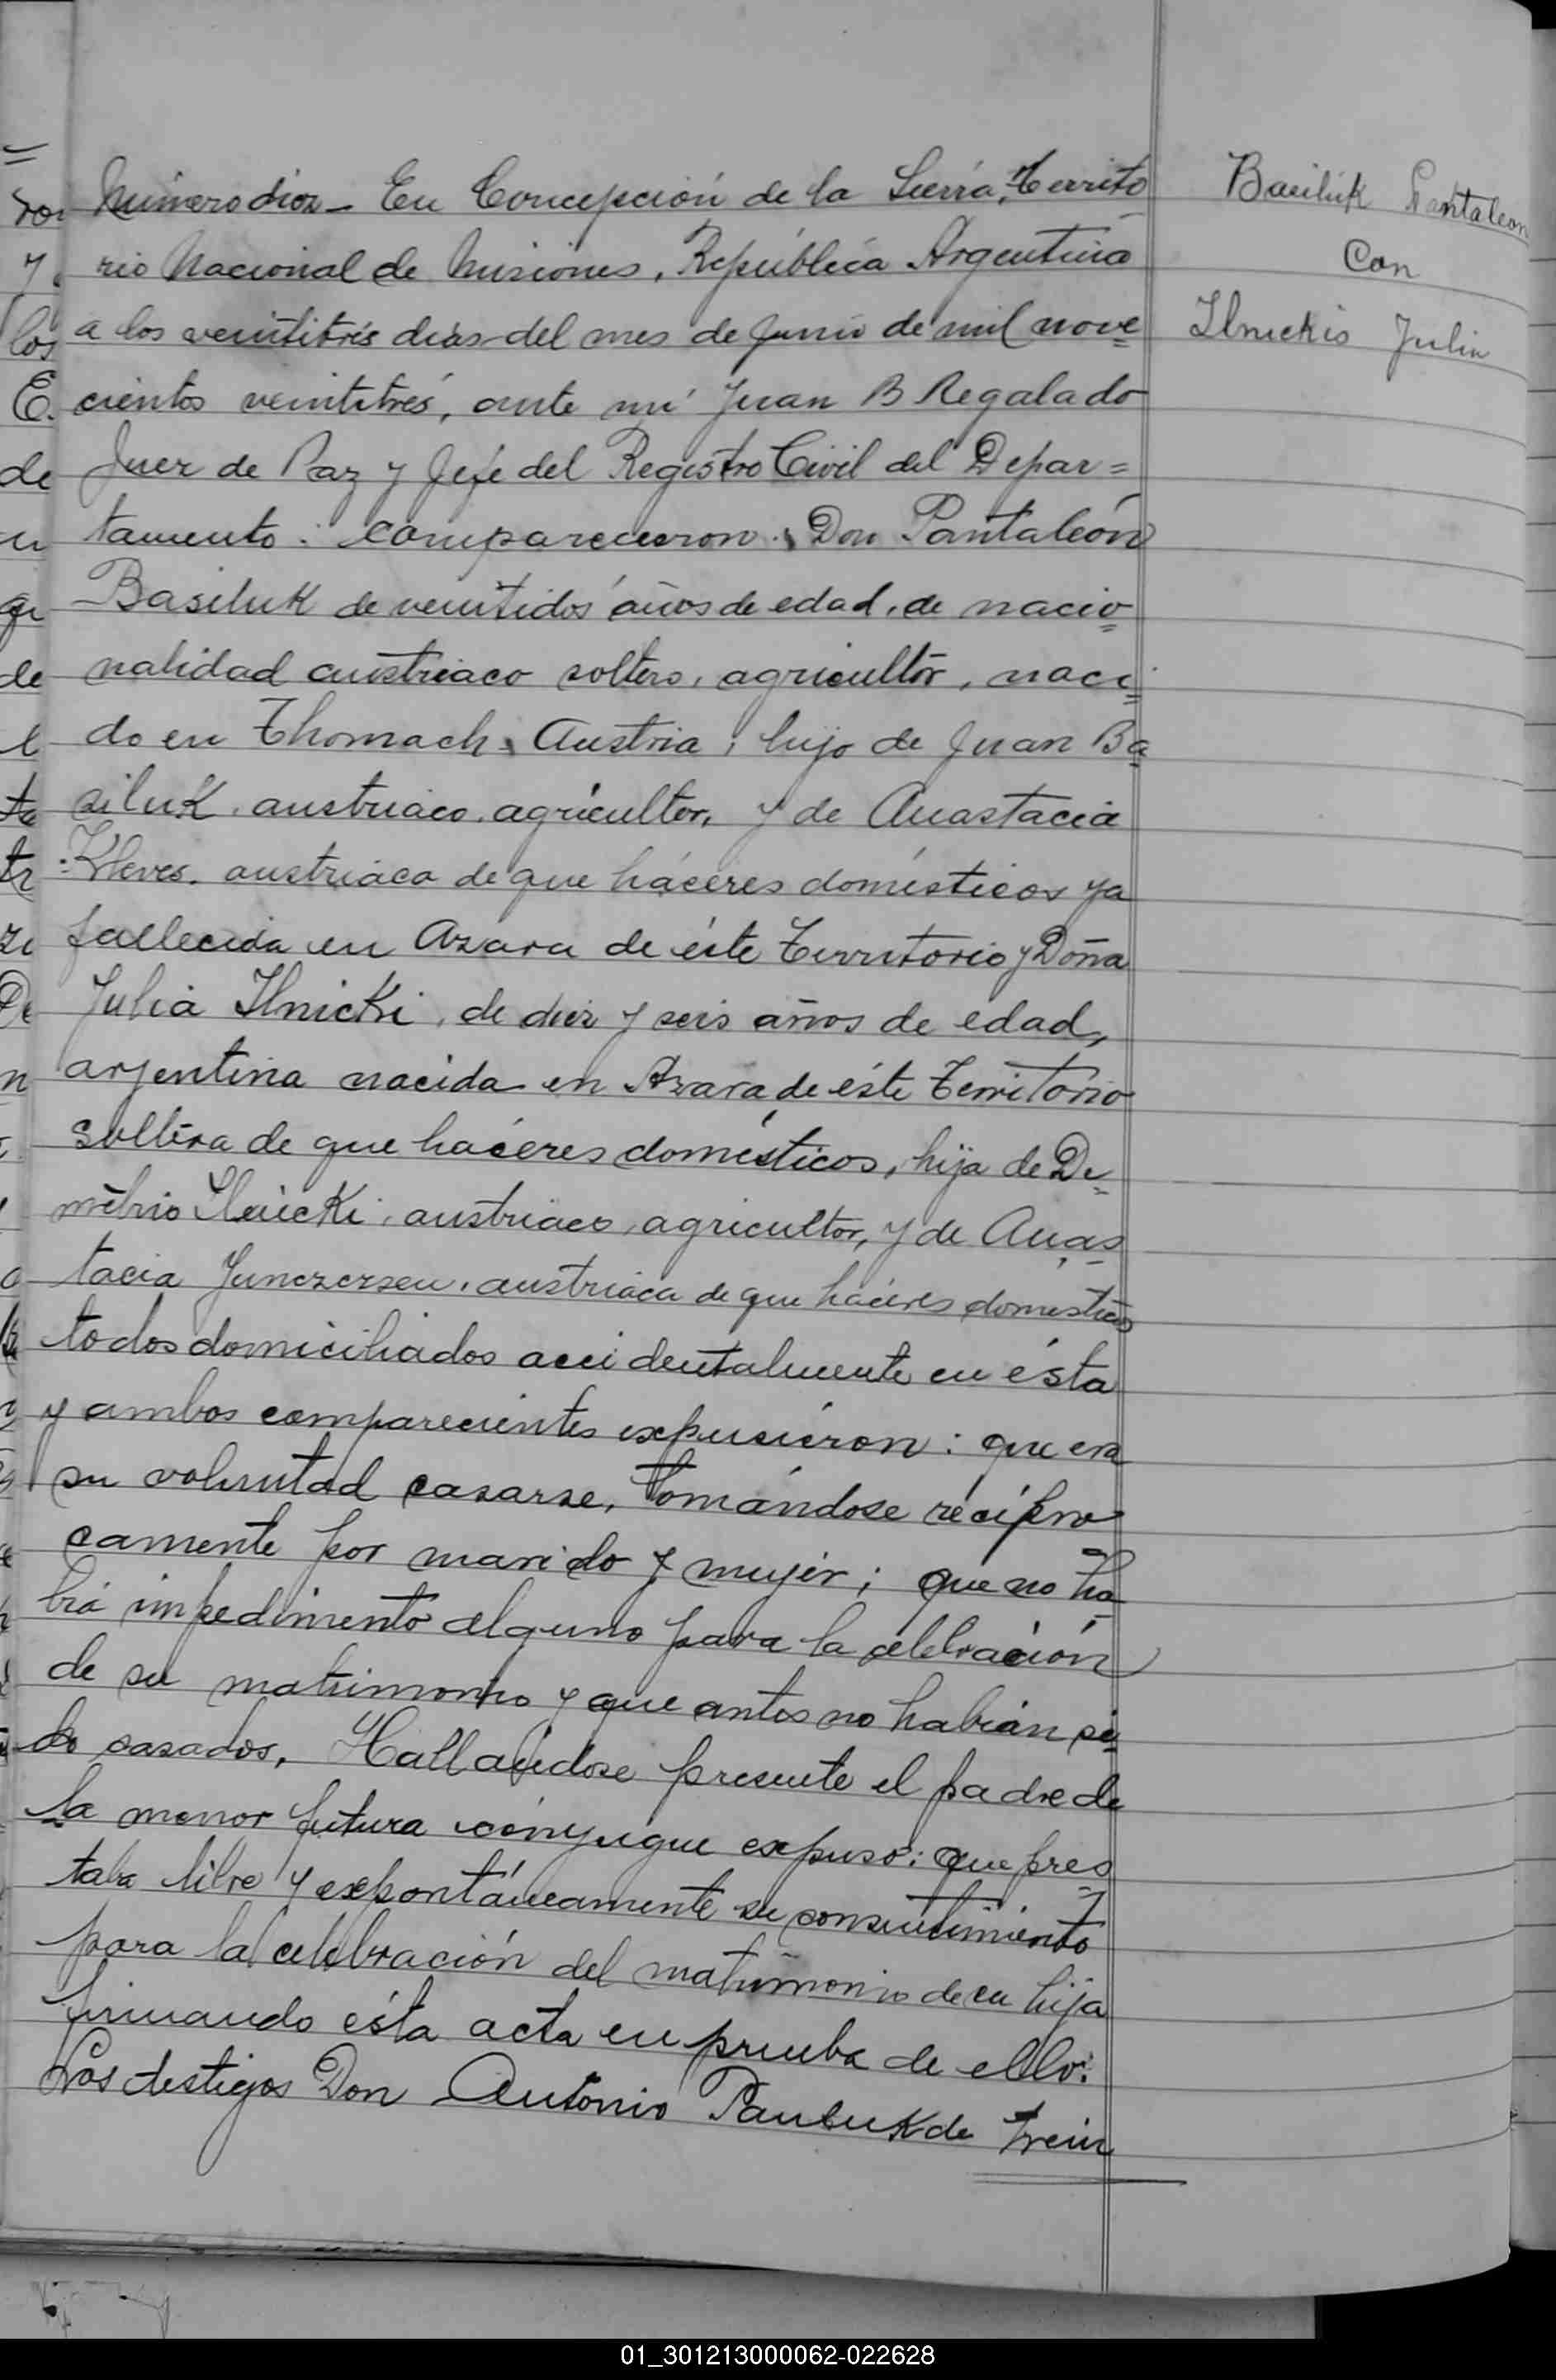 Número diez - En Concepción de la Sierra, Territo
rio Nacional de Misiones, República Argentina
a los veintitrés dias del mes de Junio de mil nove=
cientos veintitrés, ante mi Juan B Regalado
Juez de Paz y Jefe del Registro Civil del Depar=
tamento: comparecieron: Don Pantaleón
Basiluk de veintidos años de edad, de nacio=
nalidad austriaco soltero, agricultor, naci=
do en Thomach, Austria, hijo de Juan Ba
siluk, austriaco, agricultor, y de Anastacia
Kleves, austriaca de que háceres domésticos ya
fallecida en Azara de éste Territorio y Doña
Julia Ilnicki, de diez y seis años de edad,
argentina nacida en Azara de éste Territorio
soltera de que haceres domésticos, hija de De=
metrio Ilnicki, austriaco, agricultor, y de Anas
tacia austriaca de que háceres domesticos
todos domiciliados accidentalmente en ésta
y ambos comparecientes expusieron: que era
su voluntad casarse, tomándose recipro
camente por marido y mujer; que no ha
bia impedimento alguno para la celebración
de su matrimonio y que antes no habian si
do casados, Hallandose presente el padre de
la menor futura conyugue expuso: que pres
taba libre y expontáneamente su consentimiento
para la celebración del matrimonio de su hija
firmando ésta acta en prueba de ello:
Los testigos Don Antonio Pauluk de trein
Basiluk Pantaleon
Con
Ilnickis Julia
dor
y
los
E.
de
de
01_301213000062-022628